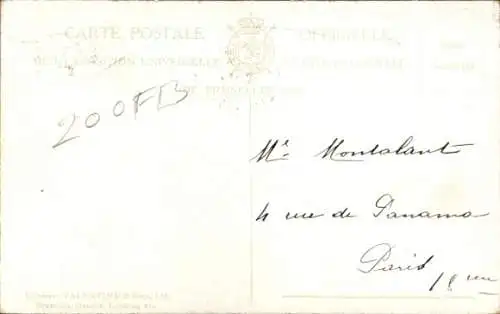 CARTE POSTALE OFFICIELLE
DE L'EXPOSITION UNIVERSELLE
DE BRUXELLES
200FB
Mr. Montalant
4 rue de Panama
Paris
18eme
VALENTINE & Sons, Ltd.